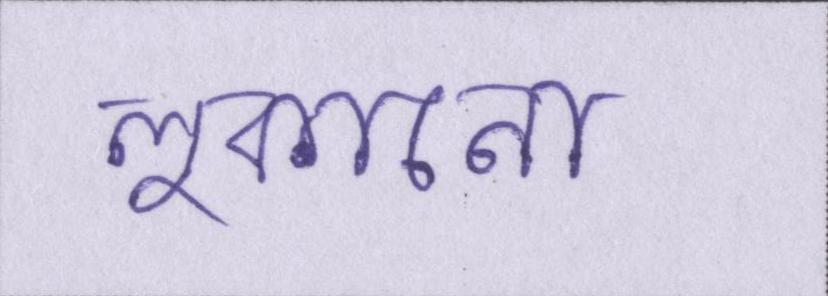 লুকানো